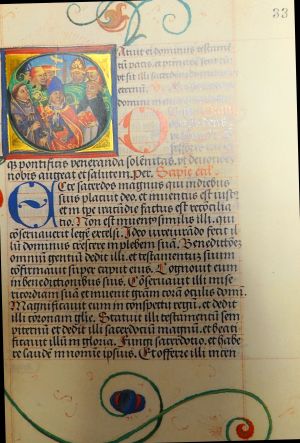 33
Statuit ei dominus testamen
tum pacis et principem fecit eum
ut sit illi sacerdotii dignitas in
eternum.
domini
pontificis veneranda solemnitas. et devotionem
nobis augeat et salutem. per. Sapie
Ecce sacerdos magnus qui in diebus
suis placuit deo. et inventus est iustus
et in tpe iracudie factus est recocilia
tio. Non est inventus similis illi. qui
coservaret legem excelsi. Ideo iureiurado fecit il
lum dominus crescere in plebem suam. Benedictione
omnium gentium dedit illi. et testamentum suum
cofirmavit super caput eius. Cognovit eum
in benedictionibus suis. Coservavit illi mise
ricordiam suam et invenit gratiam cora oculis domini.
Magnificavit eum in conspectu regum. et dedit
illi coronam glorie. Statuit illi testamentum sem
piternum et dedit illi sacerdotium magnum. et beati
ficavit illum in gloria. Fungi sacerdotio. et habe
re laudem in nomine ipsius. Et offerre illi incen